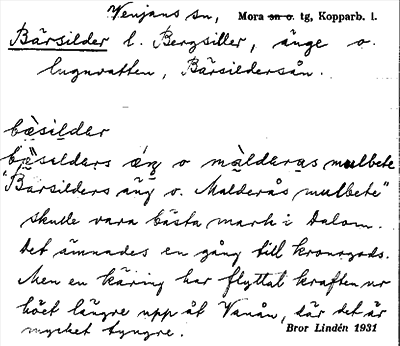 Venjans sn, Mora sn o. tg, Kopparb. l.
Bärsilder l. Bergsiller, änge o.
lugnvatten, Bärsildersån.
bæ̀sildar
bæ̀silders æŋ o màlderas mulbete
"Bärsilders äng o. Malderås mulbete"
skulle vara bästa mark i Dalom.
Det ämnades en gång till kronogods.
Men en käring har flyttat kraften ur
höet längre upp åt Vanån, där det är
mycket tyngre. Bror Lindén 1931